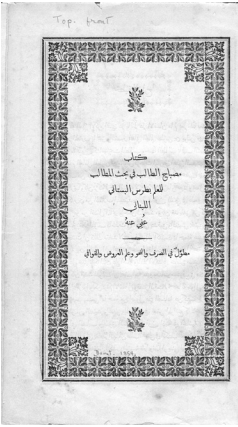 Top. front
كتاب
مصباح الطالب في بحث المطالب
للمعلم بطرس البستاني
اللبناني
عُفِيَ عنهُ
مطوَّلٌ في الصرف والنحو وعلم العروض والقوافي